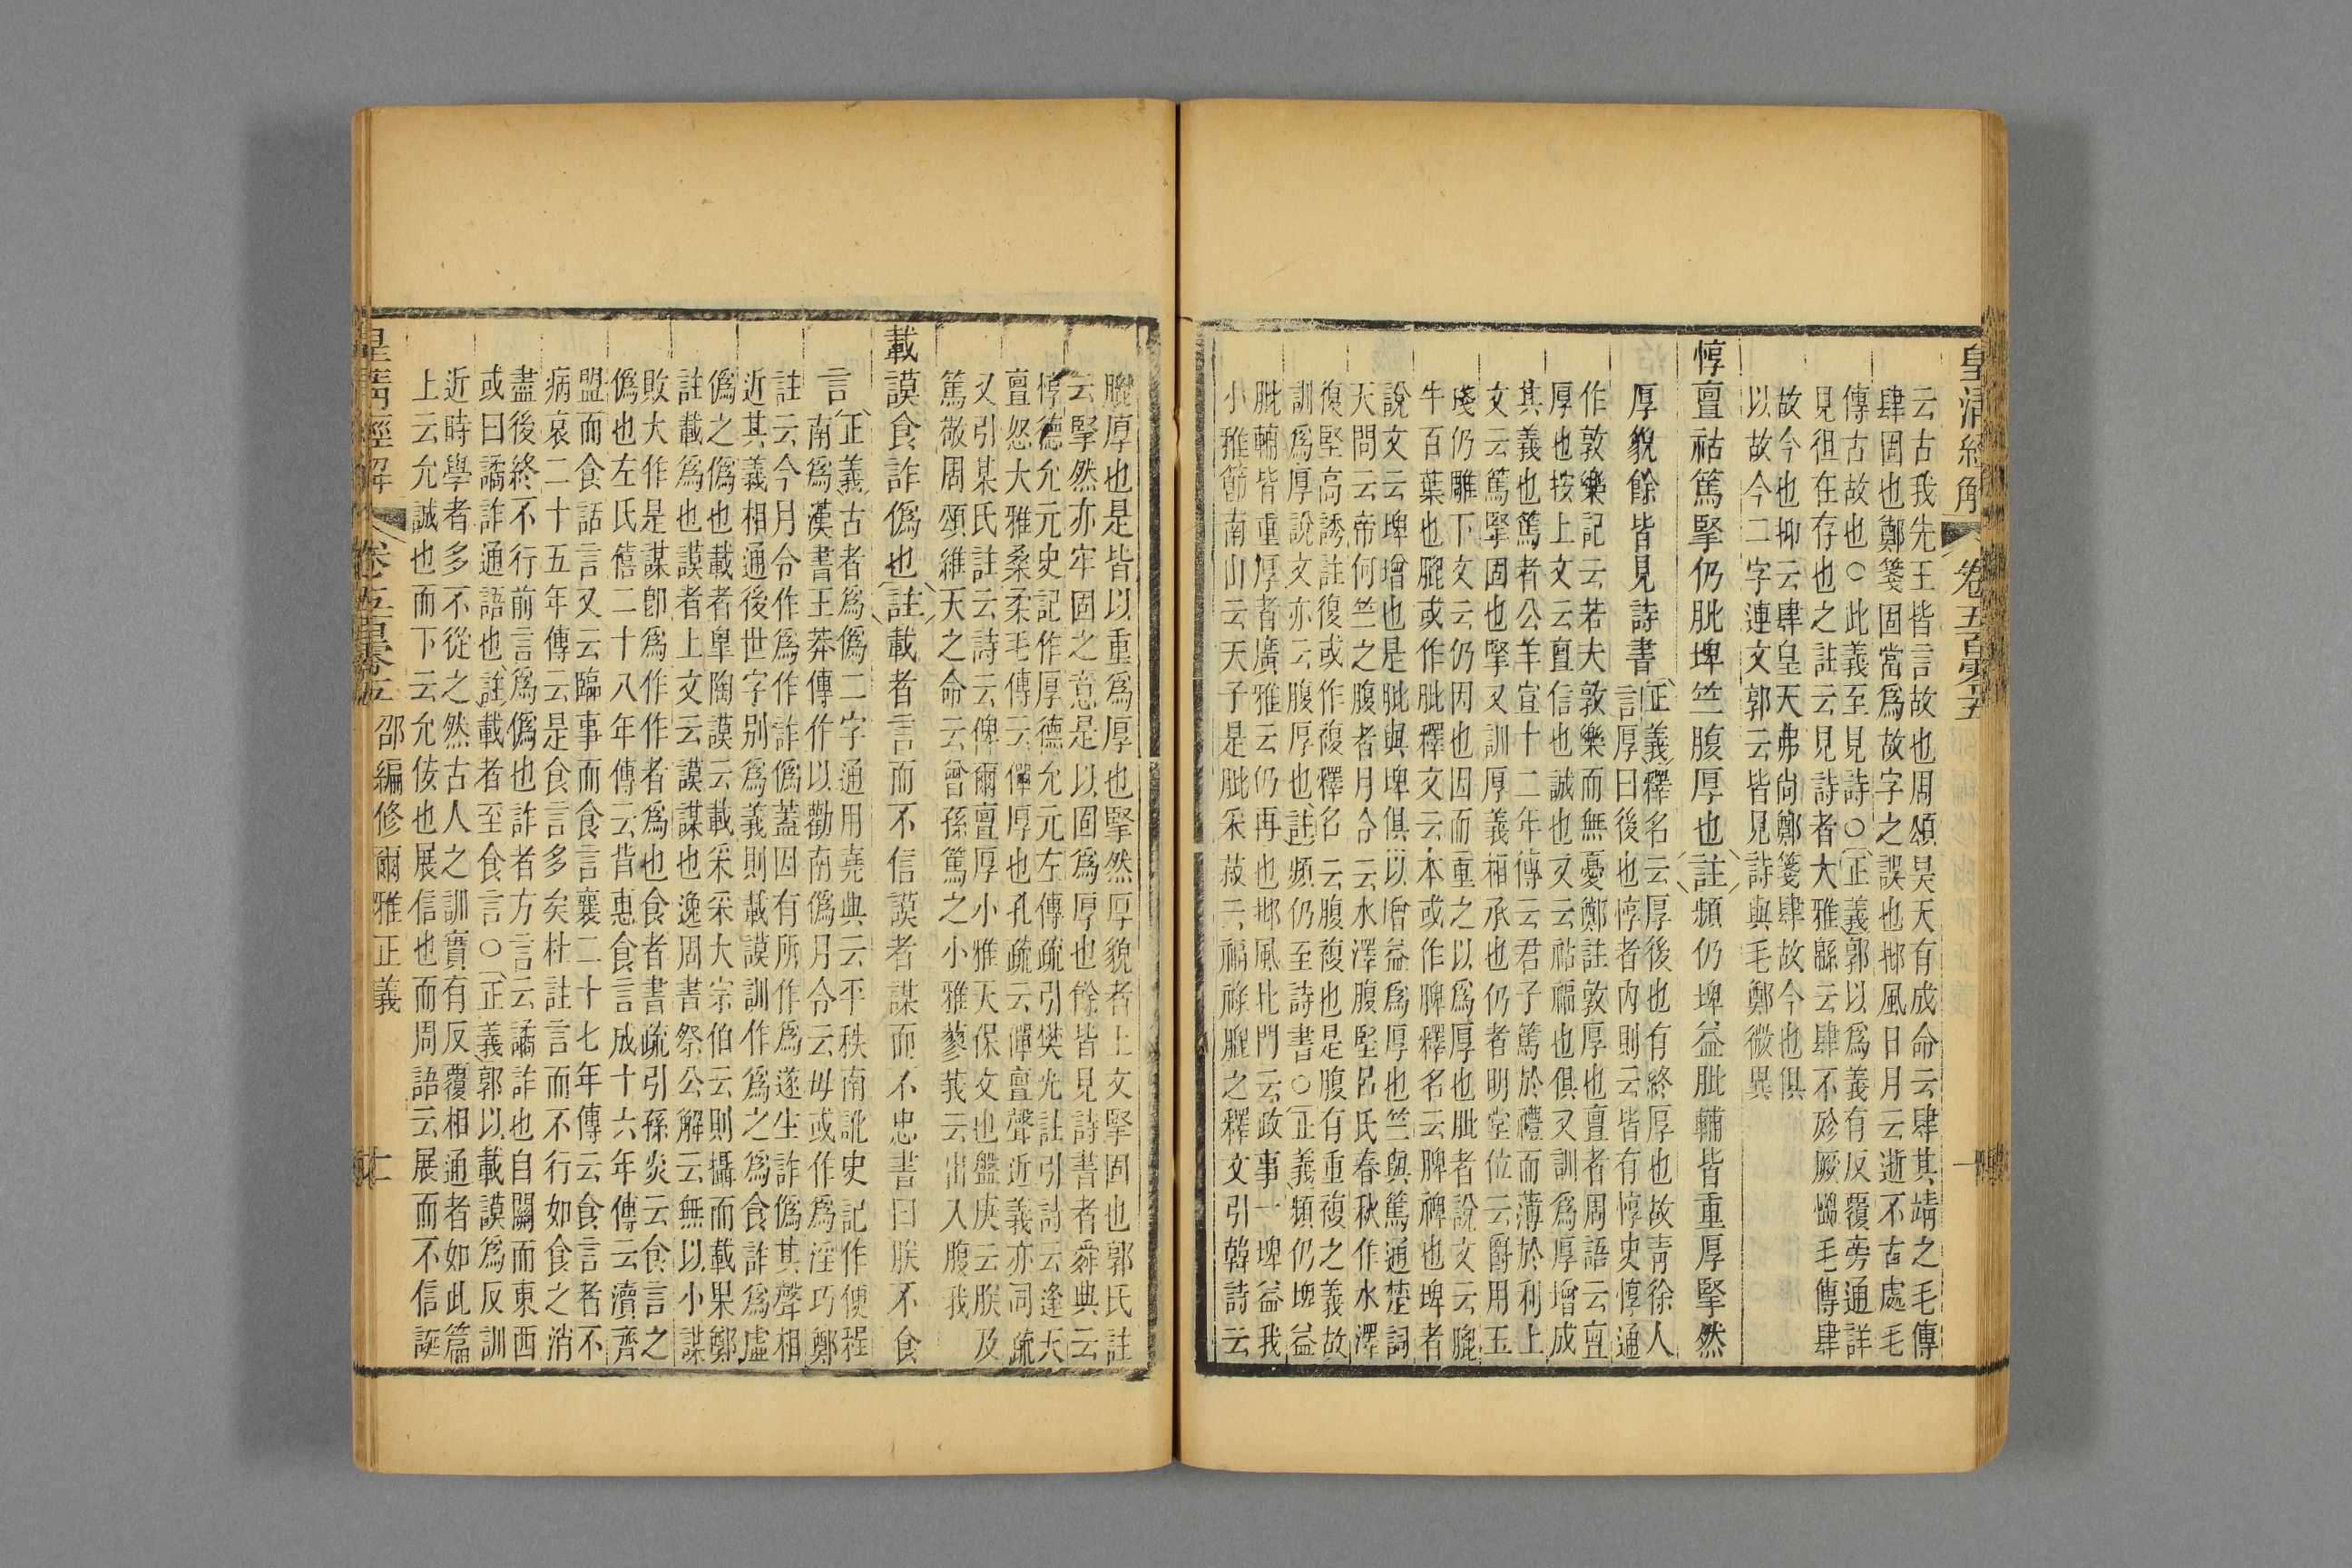 皇清經解 卷五百零五
云古我先王皆言故也周頌昊天有成命云肆其靖之毛傳
肆固也鄭箋固當爲故字之誤也邶風日月云逝不古處毛
傳古故也○此義至見詩○正義郭以爲義有反覆旁通詳
見徂在存也之註云見詩者大雅緜云肆不殄厥慍毛傳肆
故今也抑云肆皇天弗尚鄭箋肆故今也俱
以故今二字連文郭云皆見詩與毛鄭微異
惇亶祜篤掔仍肶埤竺腹厚也註頻仍埤益肶輔皆重厚掔然
厚貌餘皆見詩書
正義釋名云厚後也有終厚也故靑徐人
言厚曰後也惇者內則云皆有惇史惇通
作敦樂記云若夫敦樂而無憂鄭註敦厚也亶者周語云亶
厚也按上文云亶信也誠也又云祜福也俱又訓爲厚增成
其義也篤者公羊宣十二年傳云君子篤於禮而薄於利上
文云篤掔固也掔又訓厚義相承也仍者明堂位云爵用玉
琖仍雕下文云仍因也因而重之以爲厚也肶者說文云膍
牛百葉也膍或作肶釋文云本或作脾釋名云脾裨也埤者
說文云埤增也是肶與埤俱以增益爲厚也竺與篤通楚詞
天問云帝何竺之腹者月令云水澤腹堅呂氏春秋作水澤
復堅高誘註復或作複釋名云腹複也是腹有重複之義故
訓爲厚說文亦云腹厚也註頻仍至詩書○正義頻仍埤益
肶輔皆重厚者廣雅云仍再也邶風北門云政事一埤益我
小雅節南山云天子是肶采菽云福祿膍之釋文引韓詩云
膍厚也是皆以重爲厚也掔然厚貌者上文掔固也郭氏註
云掔然亦牢固之意是以固爲厚也餘皆見詩書者舜典云
惇德允元史記作厚德允元左傳疏引樊光註引詩云逢天
亶怒大雅桑柔毛傳云僤厚也孔疏云僤亶聲近義亦同疏
又引某氏註云詩云俾爾亶厚小雅天保文也盤庚云朕及
篤敬周頌維天之命云曾孫篤之小雅蓼莪云出入腹我
載謨食詐僞也註載者言而不信謨者謀而不忠書曰朕不食
言
正義古者爲僞二字通用堯典云平秩南訛史記作便程
南爲漢書王莽傳作以勸南僞月令云毋或作爲淫巧鄭
註云今月令作爲作詐僞蓋因有所作爲遂生詐僞其聲相
近其義相通後世字別爲義則載謨訓作爲之爲食詐爲虛
僞之僞也載者臯陶謨云載采采大宗伯云則攝而載果鄭
註載爲也謨者上文云謨謀也逸周書祭公解云無以小謀
敗大作是謀卽爲作作者爲也食者書疏引孫炎云食言之
僞也左氏僖二十八年傳云背惠食言成十六年傳云瀆齊
盟而食話言又云臨事而食言襄二十七年傳云食言者不
病哀二十五年傳云是食言多矣杜註言而不行如食之消
盡後終不行前言爲僞也詐者方言云譎詐也自關而東西
或曰譎詐通語也註載者至食言○正義郭以載謨爲反訓
近時學者多不從之然古人之訓實有反覆相通者如此篇
上云允誠也而下云允佞也展信也而周語云展而不信誕
皇清經解 卷五百零五 邵編修爾雅正義